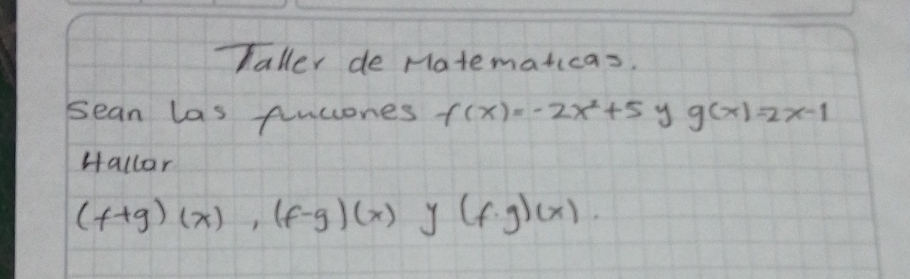 Taller de Matematicas.
Sean las funciones f(x)=-2x²+5 y g(x)=2x-1
Hallar
(f+g)(x), (f-g)(x) y (f.g)(x).